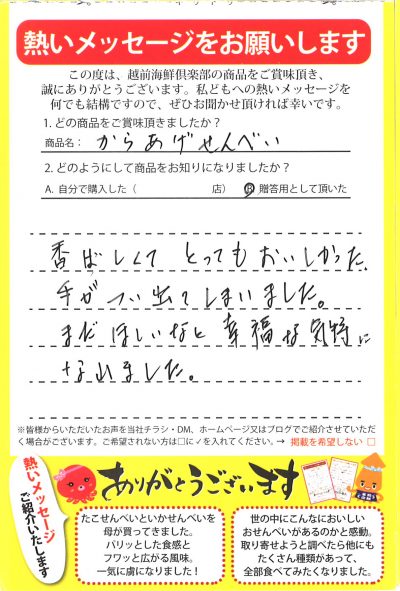 熱いメッセージをお願いします
この度は、越前海鮮倶楽部の商品をご賞味頂き、
誠にありがとうございます。私どもへの熱いメッセージを
何でも結構ですので、ぜひお聞かせ頂ければ幸いです。
1. どの商品をご賞味頂きましたか?
商品名: からあげせんべい
2. どのようにして商品をお知りになりましたか?
A. 自分で購入した( 店) B 贈答用として頂いた
香ばしくて とっても おいしかった、
手が つい出て しまいました。
まだ ほしいなと 幸福な気持に
なりました。
※皆様からいただいたお声を当社チラシ・DM、ホームページ又はブログでご紹介させていただ
く場合がございます。ご希望されない方は□に✓を入れてください。→ 掲載を希望しない □
熱いメッセージ
ご紹介いたします
ありがとうございます
たこせんべいといかせんべいを
母が買ってきました。
パリッとした食感と
フワッと広がる風味。
一気に虜になりました!
世の中にこんなにおいしい
おせんべいがあるのかと感動。
取り寄せようと調べたら他にも
たくさん種類があって、
全部食べてみたくなりました。